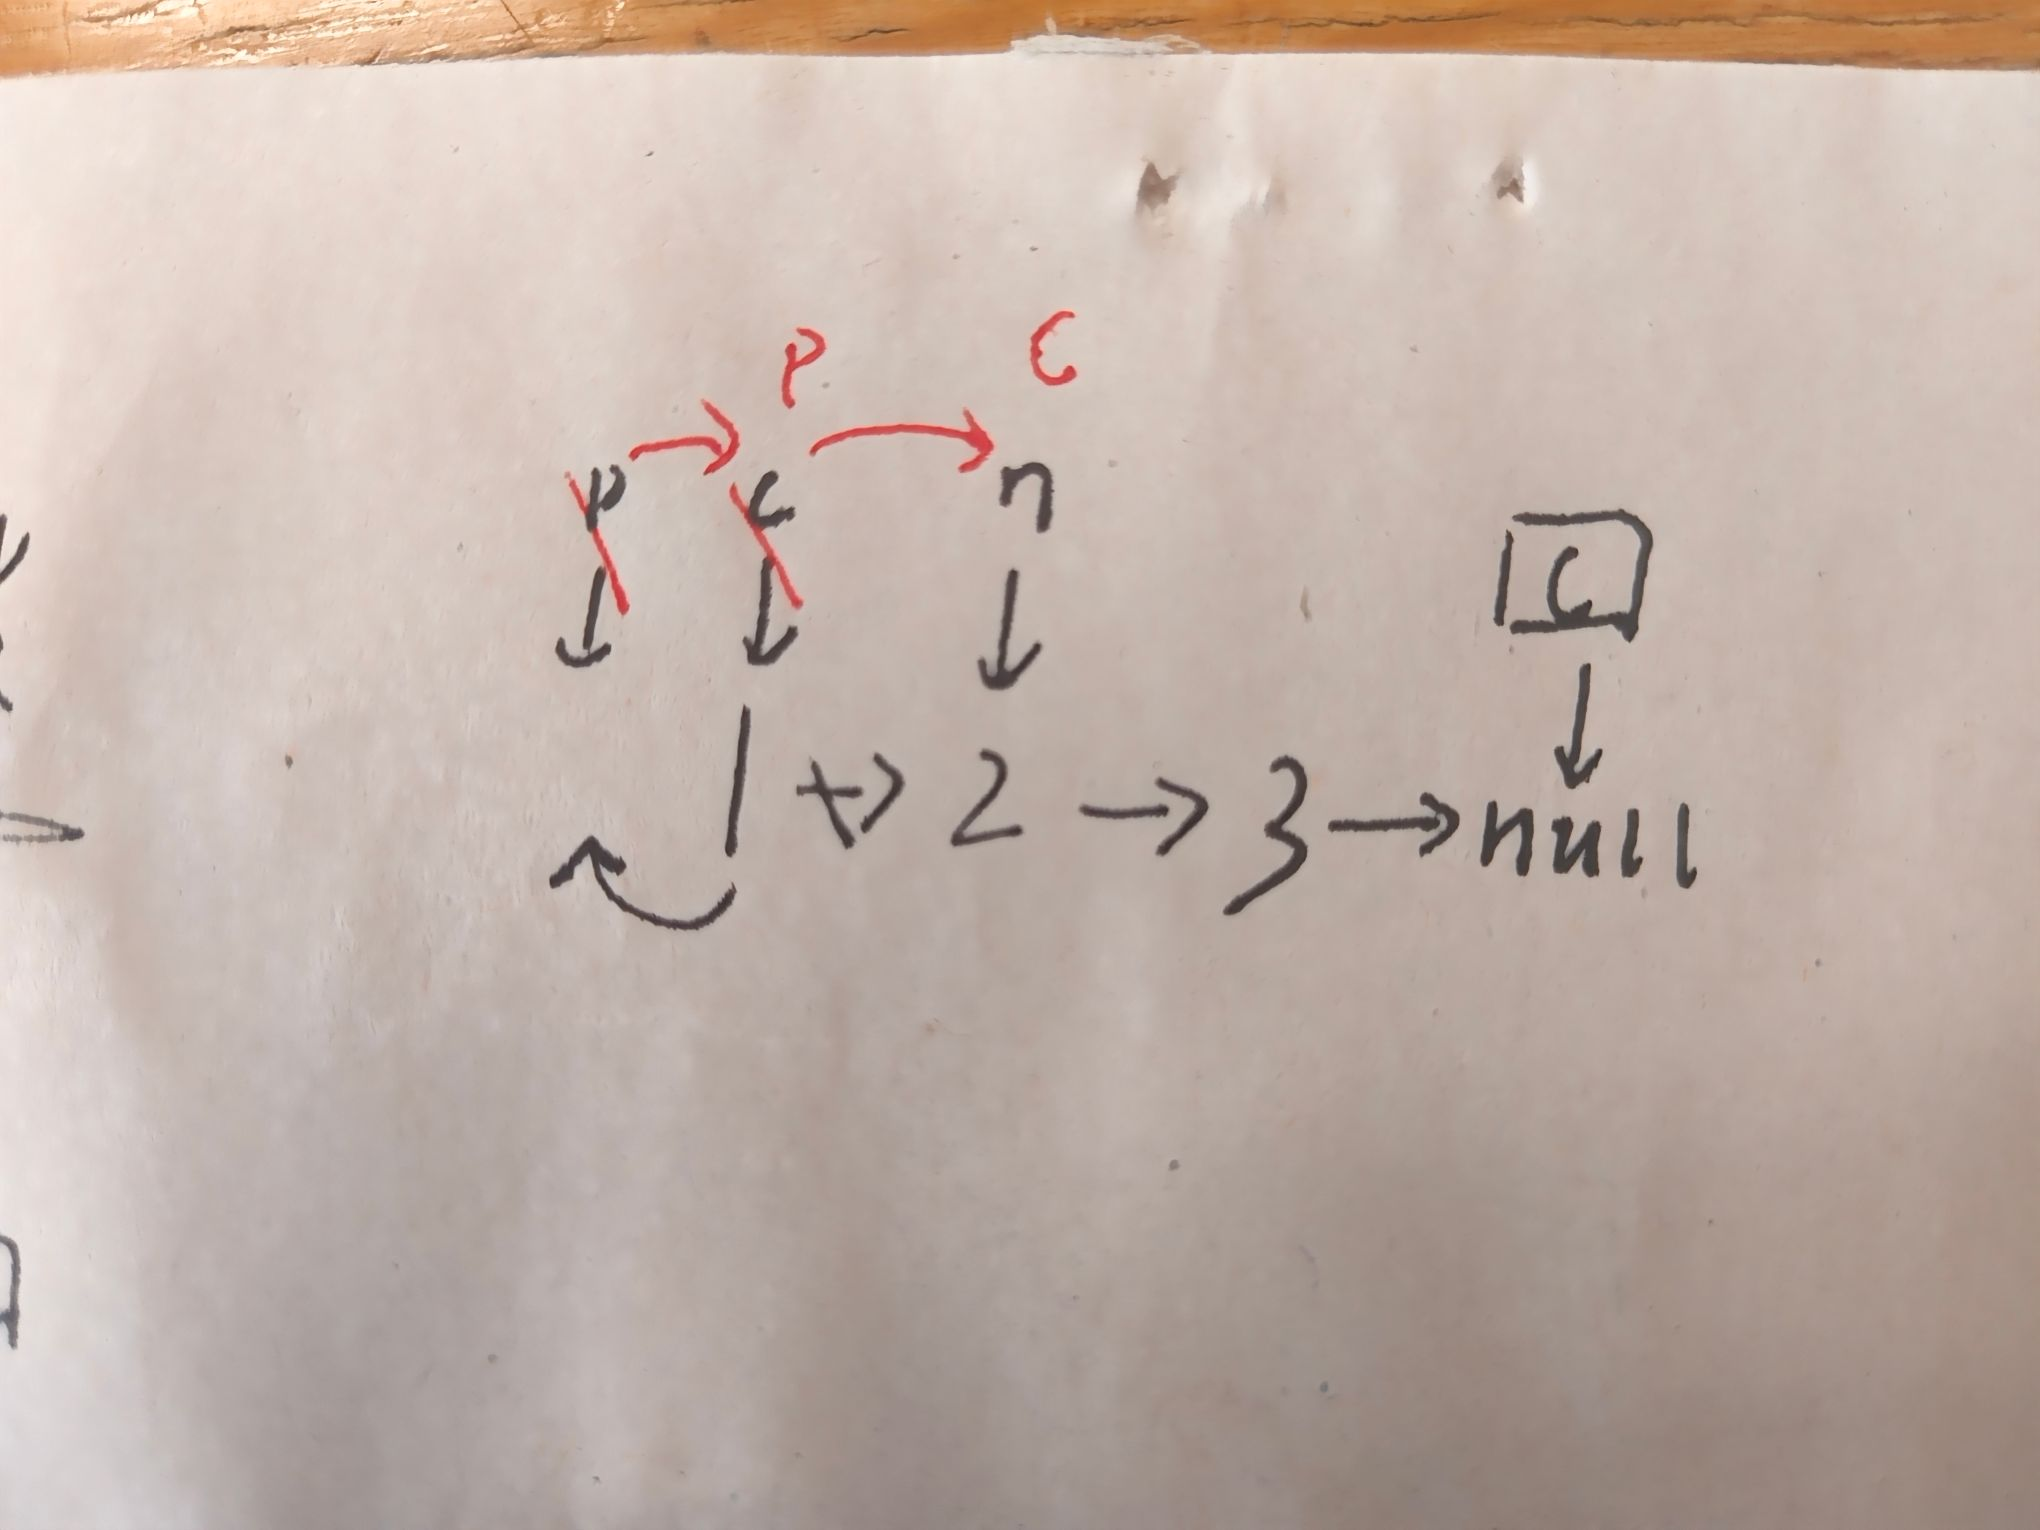 P C
p c n
C
1 → 2 → 3 → null